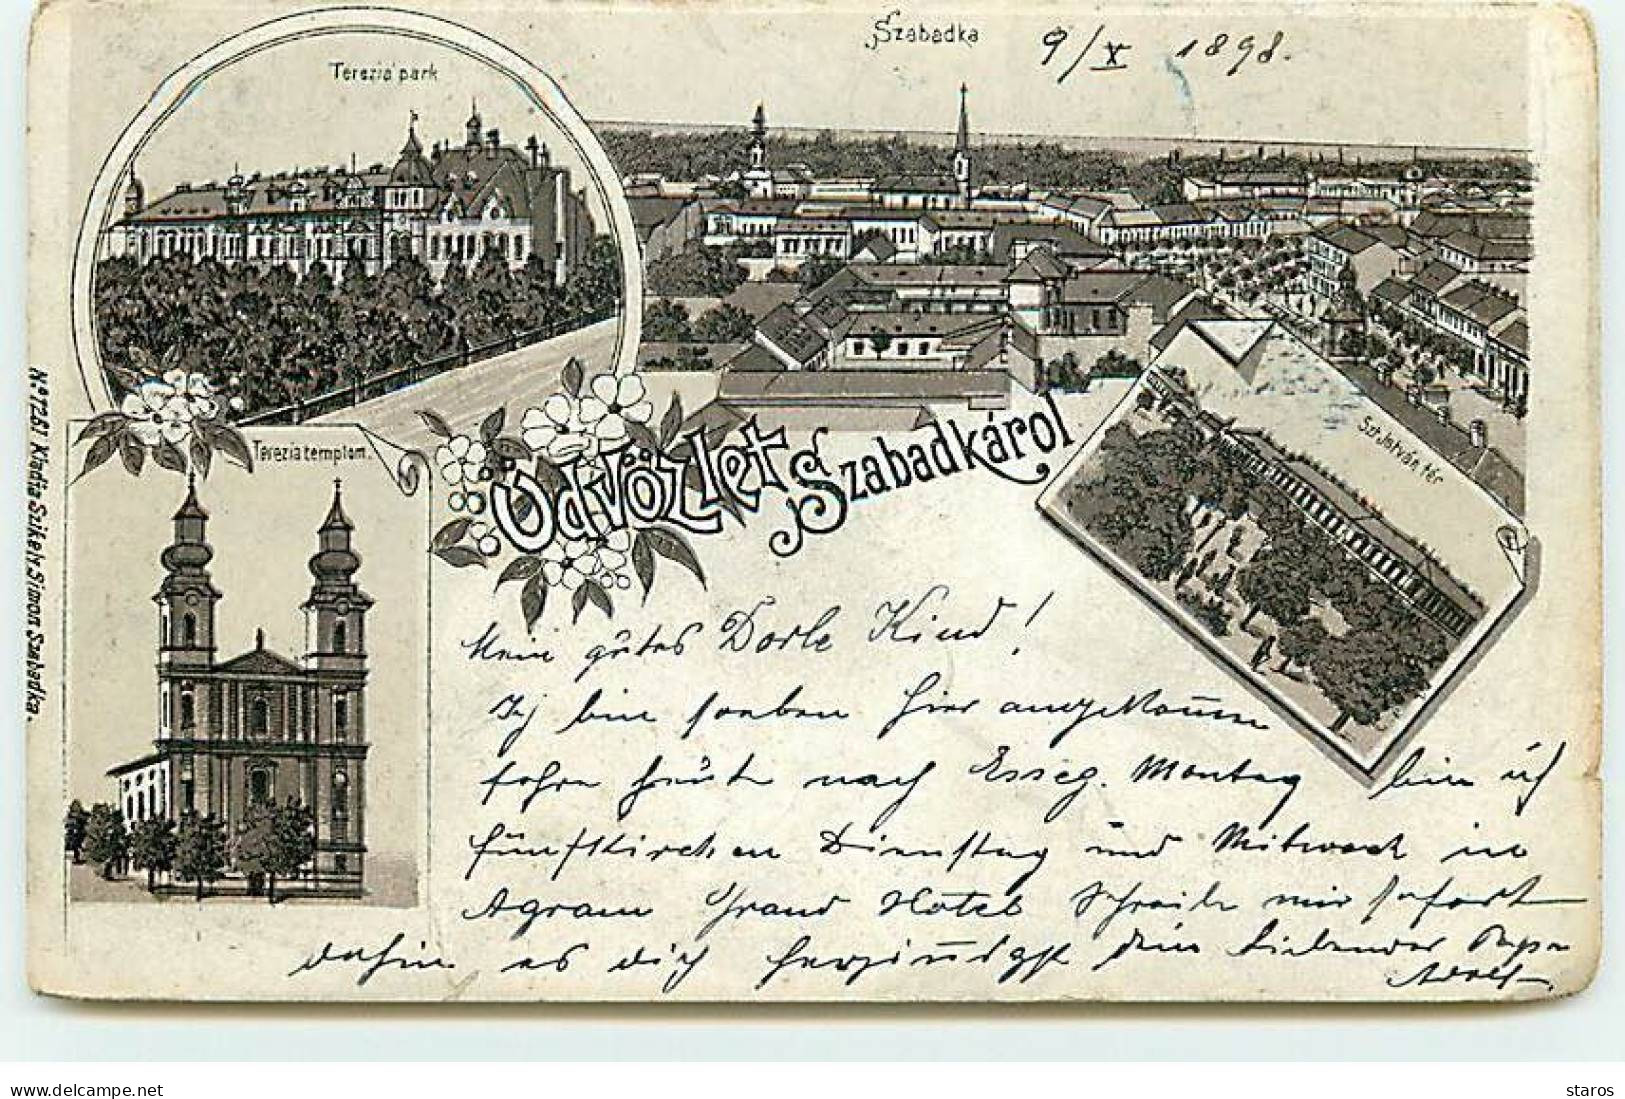 Szabadka 9/X 1898.
Terezia park
Terezia templom.
Szt István tér
Üdvözlet Szabadkárol
No 7261 Kiadta Szikely Simon Szabadka.
Mein gutes Dorle Kind!
Ich bin soeben hier angekommen
fahre heute nach Esseg. Montag bin ich
Fünfkirchen Dienstag und Mitwoch in
Agram Grand Hotel schreibe mir sofort
dahin es dich herzinnigst dein liebender Papa
Adolf.
www.delcampe.net
staros